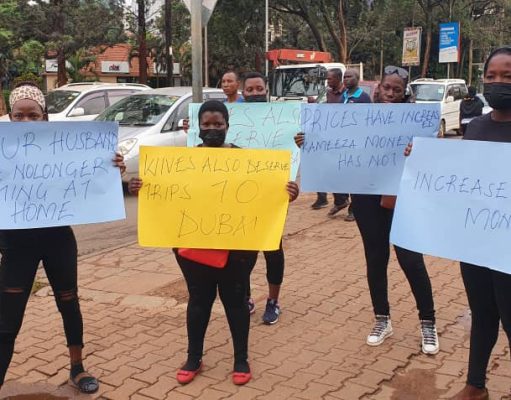 UR HUSBAN
NOLONGER
MING AT
HOME
KIVES ALSO DESERVE
TRIPS TO
DUBAI
ALSO
ERVE
PRICES HAVE INCREAS
AMEEZA MONEY
HAS NOT
INCREASE
MON